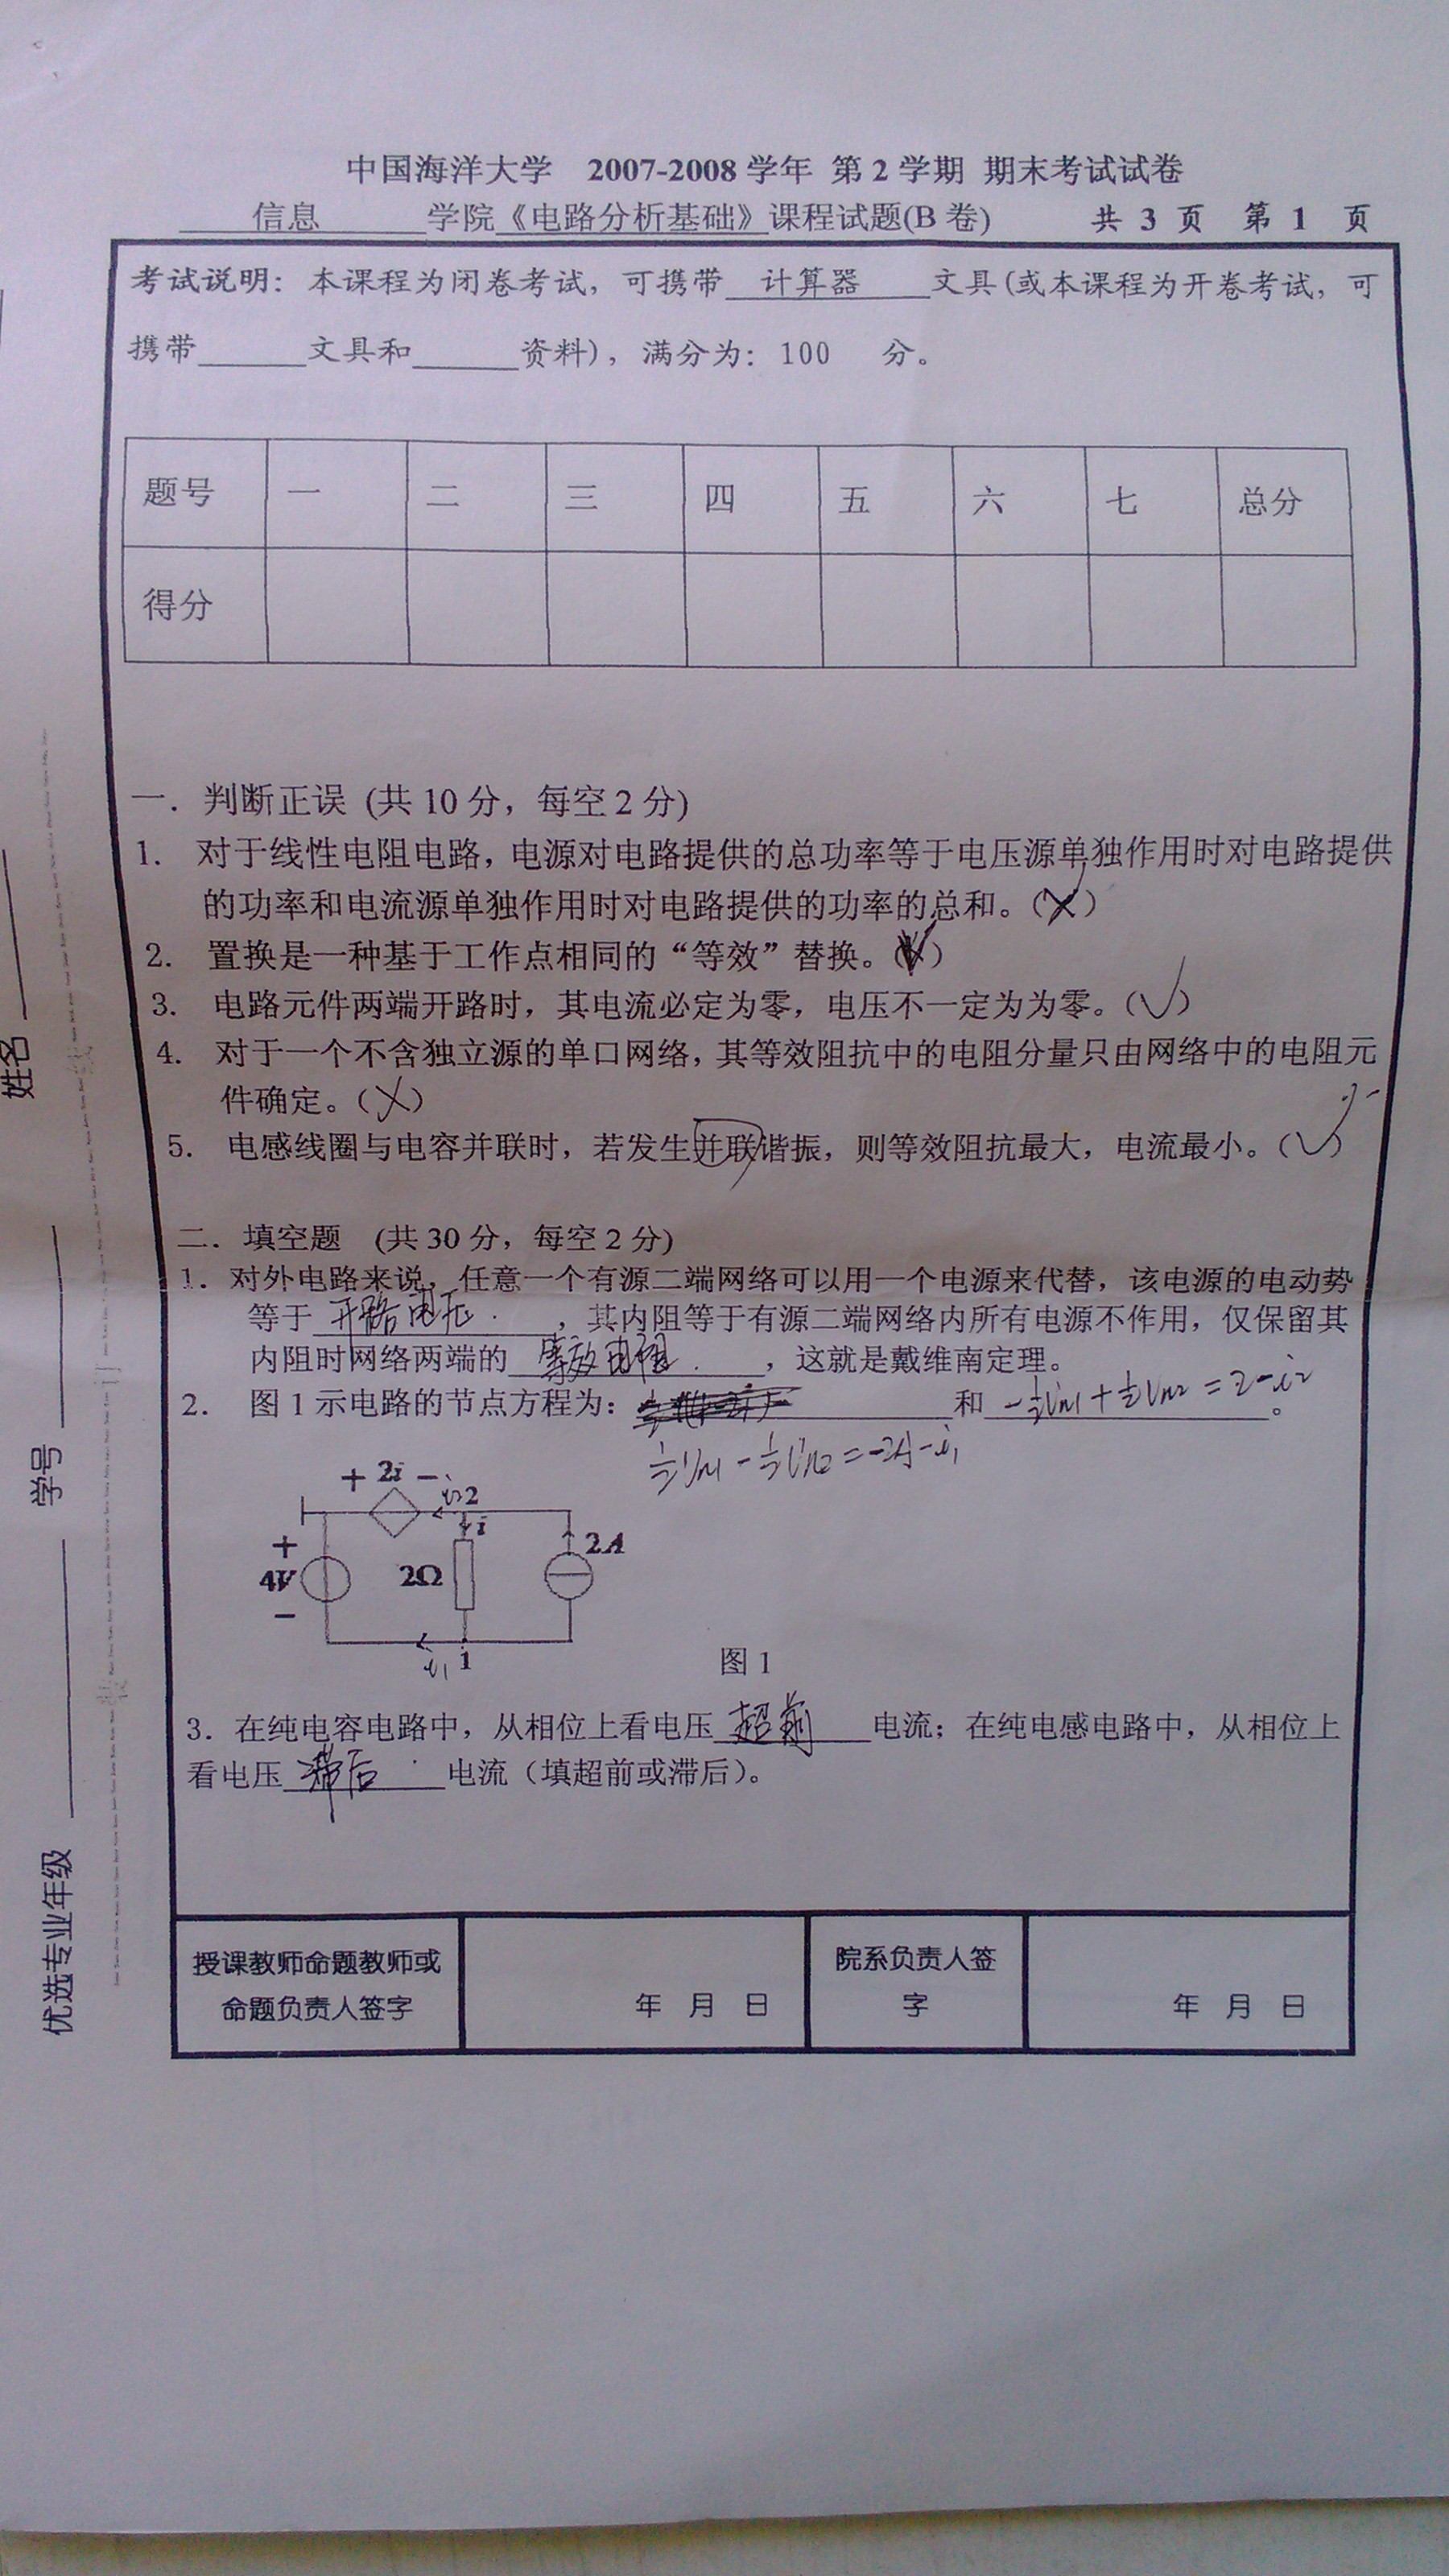 中国海洋大学 2007-2008 学年 第 2 学期 期末考试试卷
信息 学院《电路分析基础》课程试题(B 卷) 共 3 页 第 1 页
考试说明：本课程为闭卷考试，可携带 计算器 文具(或本课程为开卷考试，可
携带______文具和______资料)，满分为：100 分。
题号 一 二 三 四 五 六 七 总分
得分
一．判断正误 (共 10 分，每空 2 分)
1. 对于线性电阻电路，电源对电路提供的总功率等于电压源单独作用时对电路提供
的功率和电流源单独作用时对电路提供的功率的总和。(×)
2. 置换是一种基于工作点相同的“等效”替换。(√)
3. 电路元件两端开路时，其电流必定为零，电压不一定为为零。(√)
4. 对于一个不含独立源的单口网络，其等效阻抗中的电阻分量只由网络中的电阻元
件确定。(×)
5. 电感线圈与电容并联时，若发生并联谐振，则等效阻抗最大，电流最小。(√)
二．填空题 (共 30 分，每空 2 分)
1．对外电路来说，任意一个有源二端网络可以用一个电源来代替，该电源的电动势
等于 开路电压 ，其内阻等于有源二端网络内所有电源不作用，仅保留其
内阻时网络两端的 等效电阻 ，这就是戴维南定理。
2. 图 1 示电路的节点方程为：______和 -½Un1 + ½Un2 = 2-i2 。
½Un1 - ½Un2 = -2A-i1
+ 2i - i2 2
i
+ 4V -
2Ω
2A
i1 1
图 1
3．在纯电容电路中，从相位上看电压 超前 电流；在纯电感电路中，从相位上
看电压 滞后 电流（填超前或滞后）。
授课教师命题教师或
命题负责人签字
年 月 日
院系负责人签
字
年 月 日
姓名
学号
优选专业年级